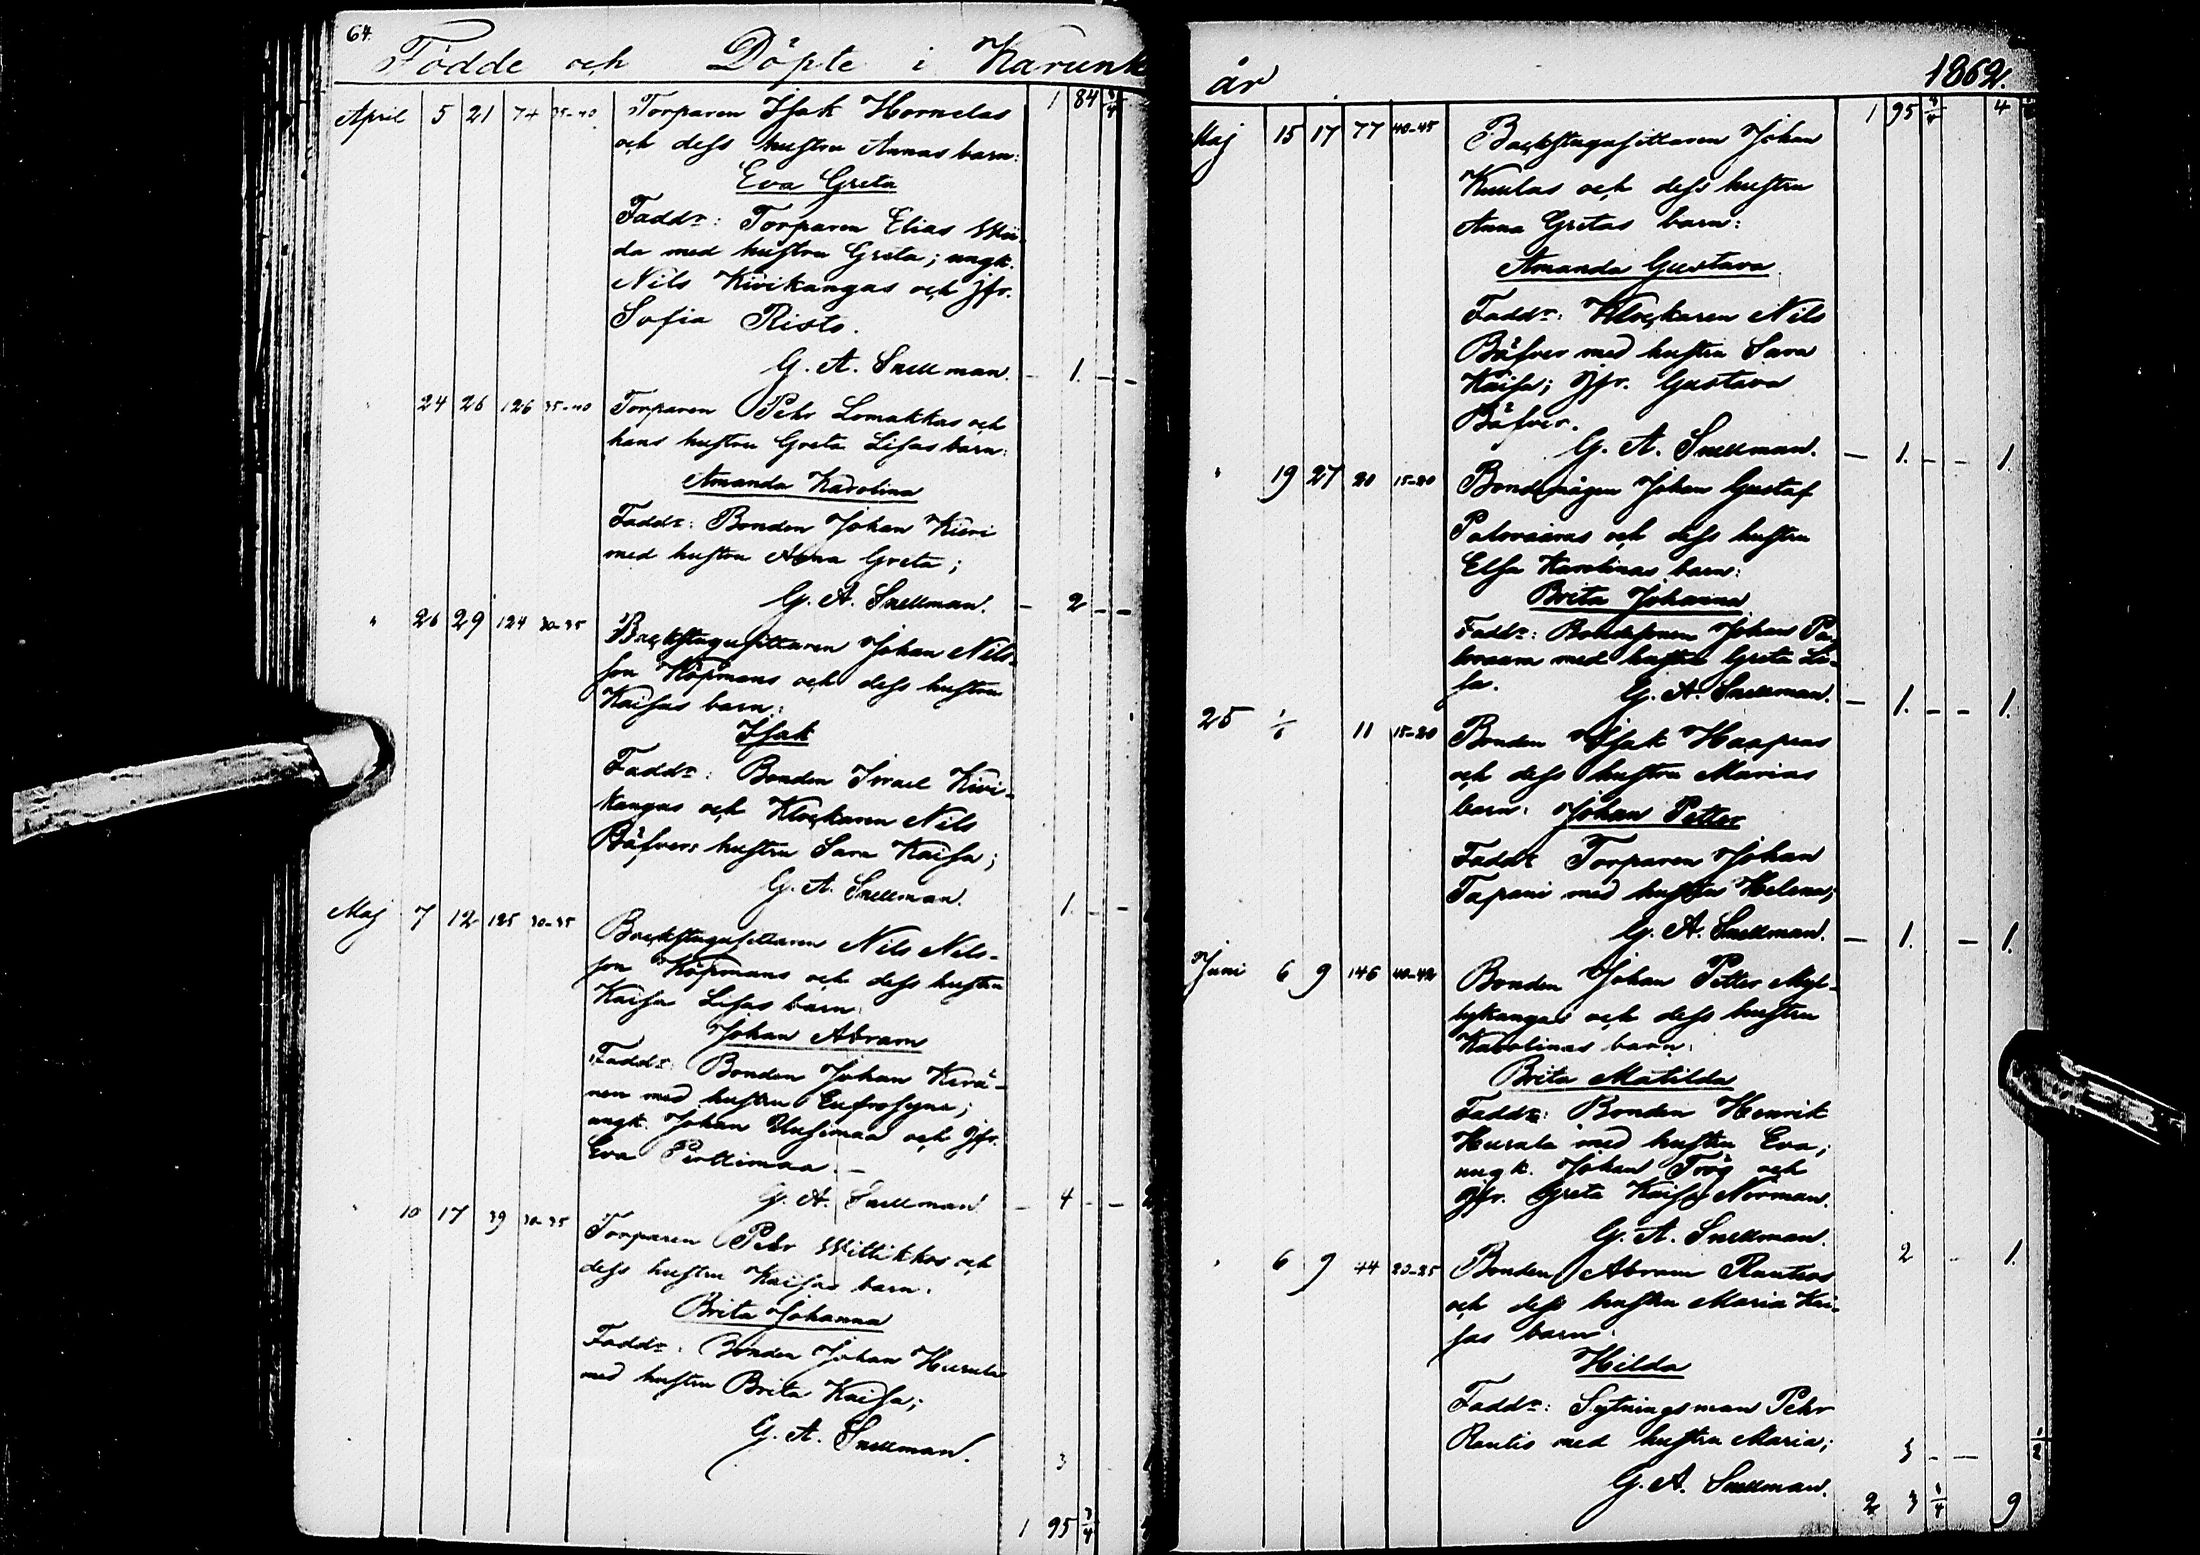 64.
Födde och Döpte i Karunk
April 5 21 74 35-40 Torparen Isak Hornelas 1 84 3/4
och dess hustru Annas barn:
Eva Greta
Faddr: Torparen Elias
da med hustru Greta; ungk.
Nils Kivikangas och jfr.
Sofia Risto.
G. A. Snellman. - 1. - -
" 24 26 126 35-40 Torparen Pehr Lomakkas och
hans hustru Greta Lisas barn:
Amanda Karolina
Faddr: Bonden Johan Kieri
med hustru Anna Greta;
G. A. Snellman. - 2 - -
" 26 29 124 30-35 Backstugusittaren Johan Nils-
son Köpmans och dess hustru
Kaisas barn:
Isak
Faddr: Bonden Israel Kivi-
kangas och Klockaren Nils
Bäfvers hustru Sara Kaisa;
G. A. Snellman. 1. - -
Maj 7 12 125 30-35 Backstugusittaren Nils Nils-
son Köpmans och dess hustru
Kaisa Lisas barn:
Johan Abram
Faddr: Bonden Johan Kerä-
nen med hustru Eufrosyne;
ungk. Johan Uusimaa och jfr.
Eva Perttimaa. -
G. A. Snellman - 4 - -
" 10 17 39 30-35 Torparen Pehr Wittikkos och
dess hustru Kaisas barn:
Brita Johanna
Faddr: Bonden Johan Hurula
med hustru Brita Kaisa;
G. A. Snellman. 3
1 95 3/4
år 1862.
Maj 15 17 77 40-45 Backstugusittaren Johan 1 95 3/4 4
Knulas och dess hustru
Anna Gretas barn:
Amanda Gustava
Faddr: Klockaren Nils
Bäfver med hustru Sara
Kaisa; jfr. Gustava
Bäfver.
G. A. Snellman. - 1. - - 1.
" 19 27 20 15-20 Bondemågen Johan Gustaf
Palovaaras och dess hustru
Elsa Karolinas barn:
Brita Johanna
Faddr: Bondesonen Johan Pa-
lovaara med hustru Greta Li-
sa. G. A. Snellman. - 1. - - 1.
25 1/6 11 15-20 Bonden Isak Haapras
och dess hustru Marias
barn: Johan Petter
Faddr Torparen Johan
Tapani med hustru Helena;
G. A. Snellman. - 1. - 1.
Juni 6 9 146 40-42 Bonden Johan Petter Myl-
lykangas och dess hustru
Karolinas barn:
Brita Matilda
Faddr: Bonden Henrik
Hurula med hustru Eva;
ungk. Johan Töög och
jfr. Greta Kaisa Norman.
G. A. Snellman. 2 - 1.
" 6 9 44 20-25 Bonden Abram Rautios
och dess hustru Maria Kai-
sas barn:
Hilda
Faddr: Sytningsman Pehr
Rautio med hustru Maria;
3 - - 1/2
G. A. Snellman.
2 3 3/4 9